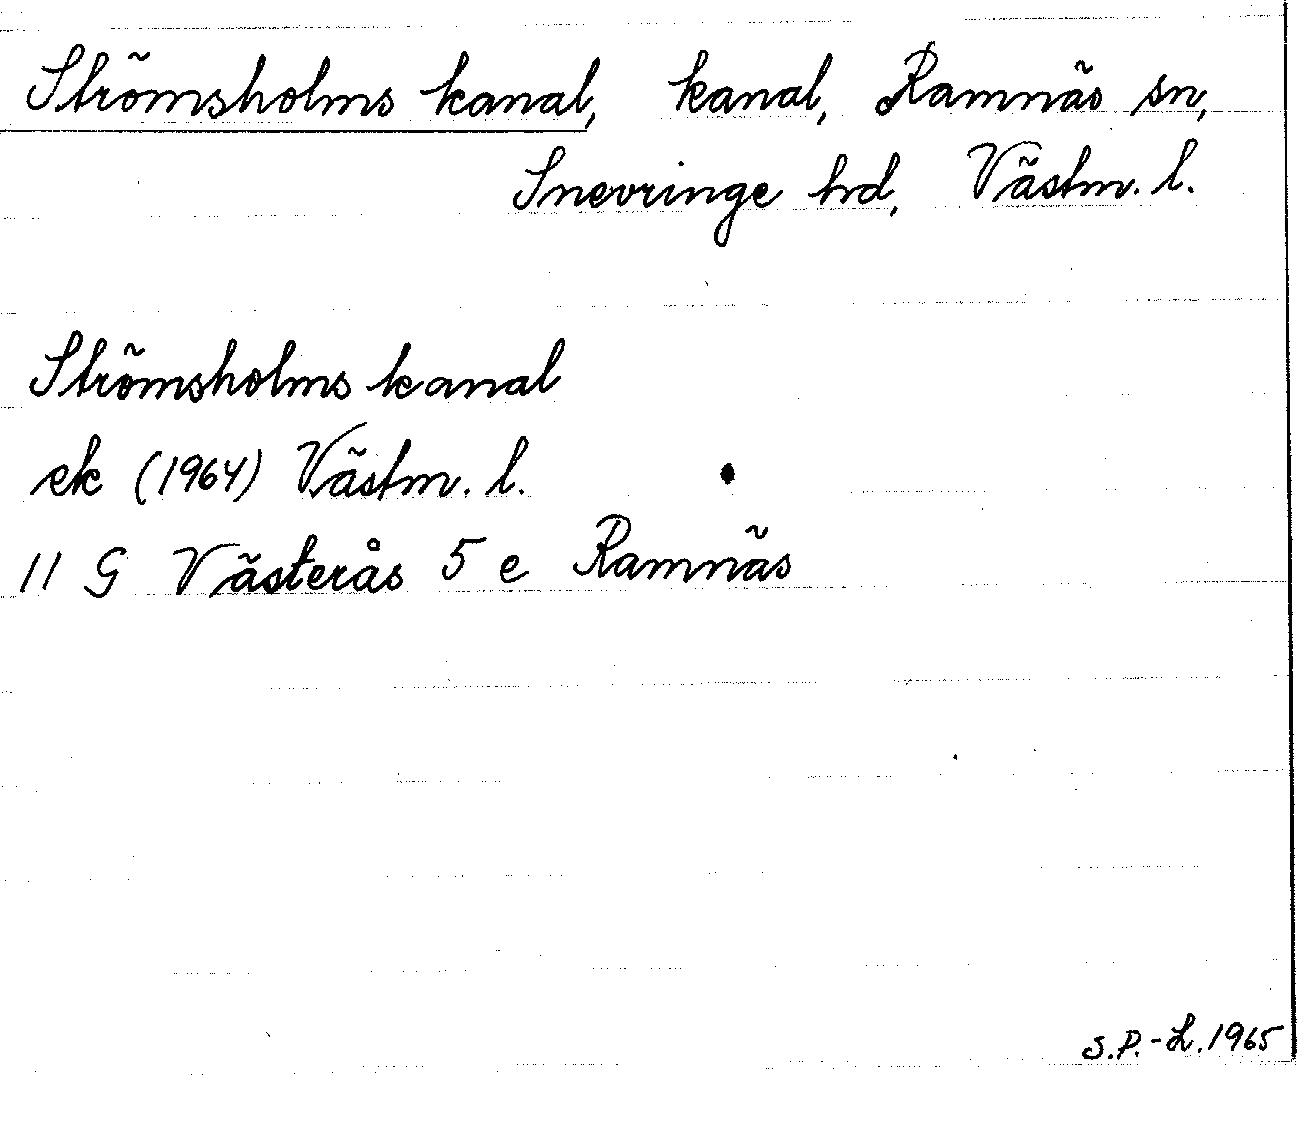 Strömsholms kanal, kanal, Ramnäs sn,
Snevringe hd, Västm. l.
Strömsholms kanal
ek (1964) Västm. l.
11 G Västerås 5 e Ramnäs
S.P.-L. 1965